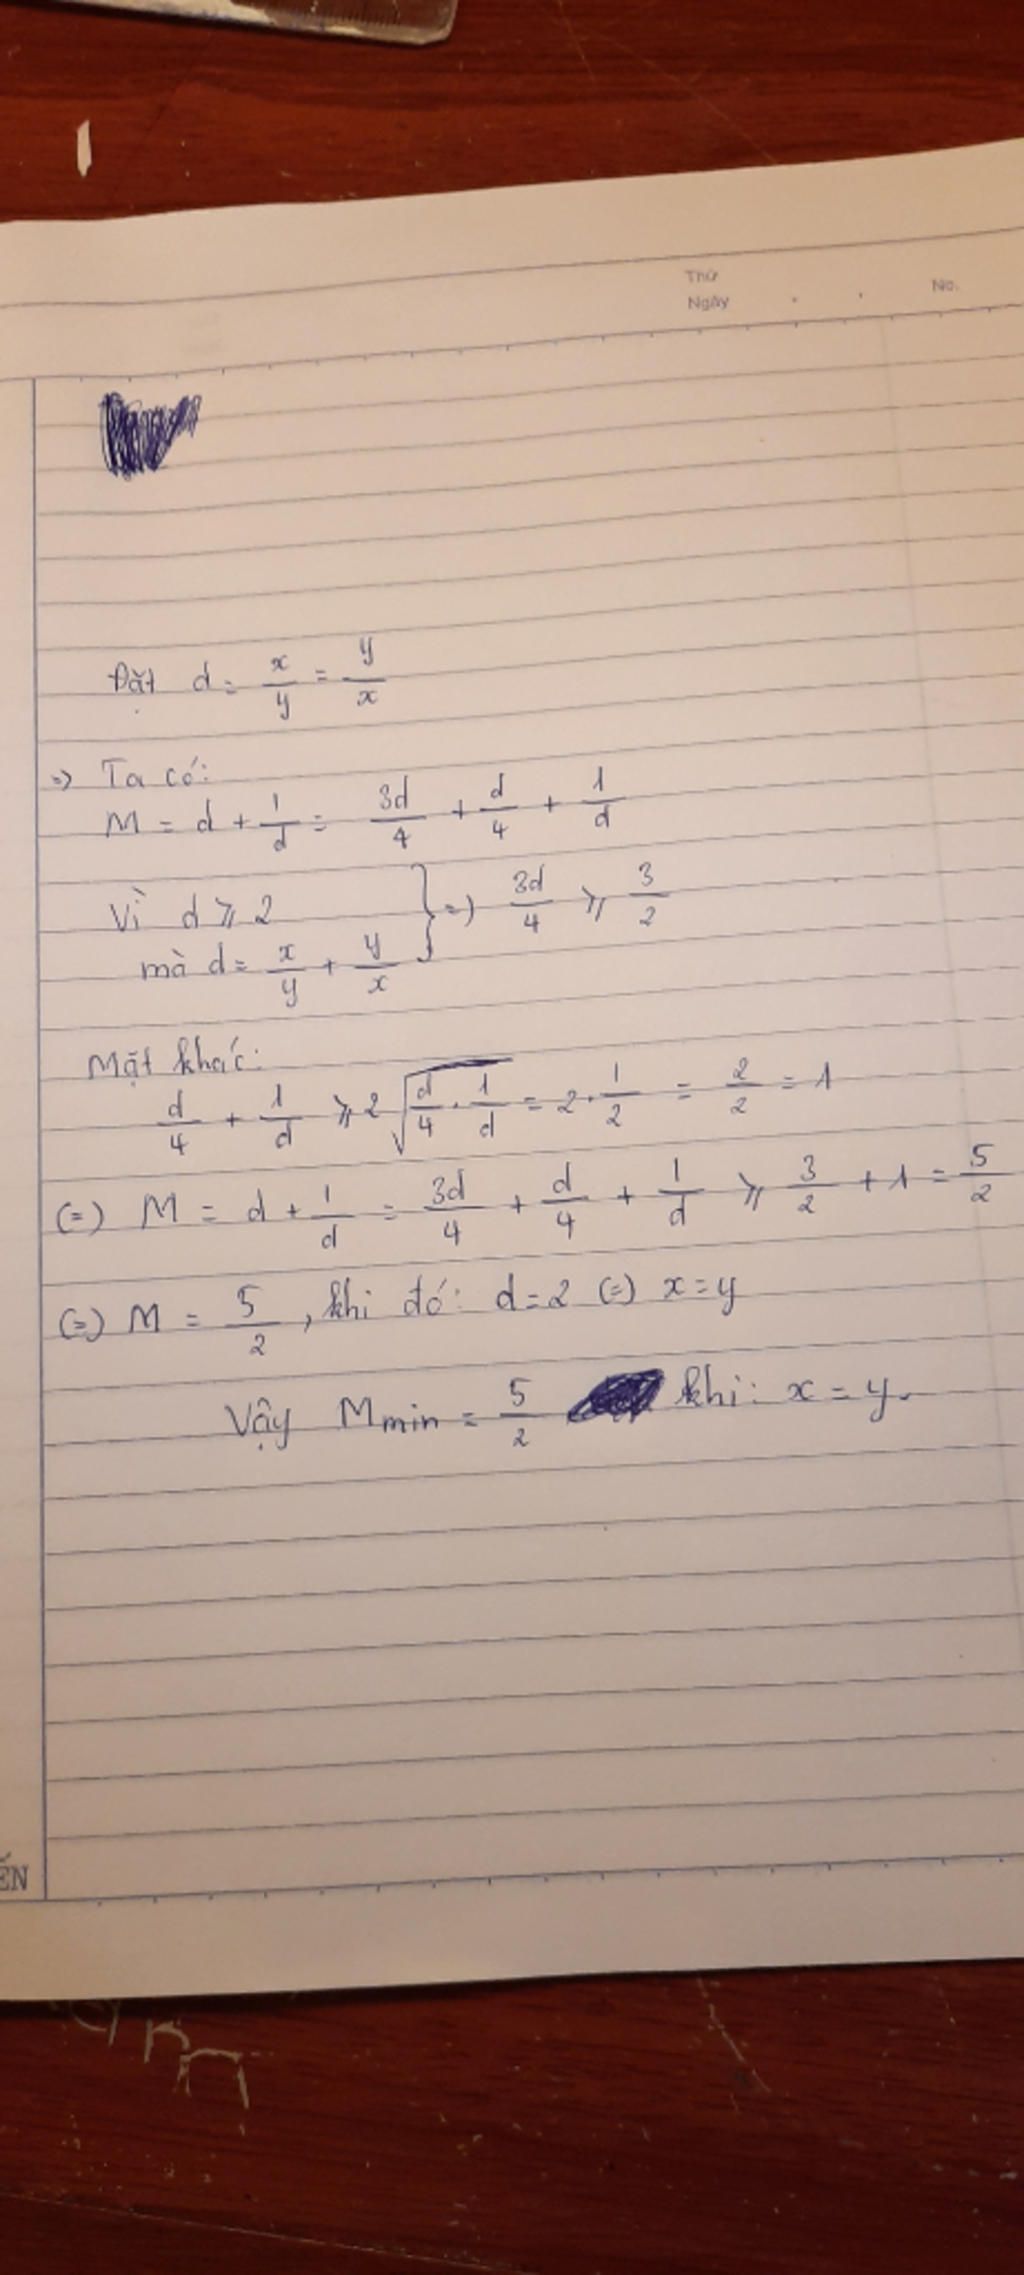 Thứ
Ngày . . No.
Đặt d = x/y = y/x
=> Ta có:
M = d + 1/d = 3d/4 + d/4 + 1/d
Vì d ⩾ 2
mà d = x/y + y/x } => 3d/4 ⩾ 3/2
Mặt khác:
d/4 + 1/d ⩾ 2√(d/4 . 1/d) = 2 . 1/2 = 2/2 = 1
(=) M = d + 1/d = 3d/4 + d/4 + 1/d ⩾ 3/2 + 1 = 5/2
(=) M = 5/2 , khi đó: d = 2 (=) x = y
Vậy Mmin = 5/2 khi: x = y.
ẾN